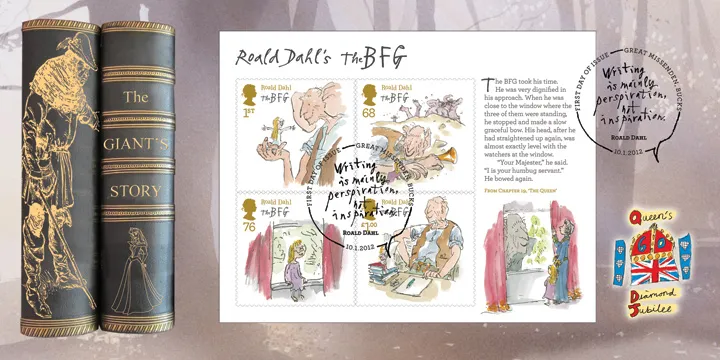 The
GIANT'S
STORY
Roald Dahl's The BFG
Roald Dahl
The BFG
1st
Roald Dahl
The BFG
68
Roald Dahl
The BFG
76
Roald Dahl
The BFG
£1.00
FIRST DAY OF ISSUE • GREAT MISSENDEN, BUCKS
Writing
is mainly
perspiration,
not
inspiration.
ROALD DAHL
10.1.2012
The BFG took his time.
He was very dignified in
his approach. When he was
close to the window where the
three of them were standing,
he stopped and made a slow
graceful bow. His head, after he
had straightened up again, was
almost exactly level with the
watchers at the window.
"Your Majester," he said.
"I is your humbug servant."
He bowed again.
FROM CHAPTER 19, 'THE QUEEN'
FIRST DAY OF ISSUE • GREAT MISSENDEN, BUCKS
Writing
is mainly
perspiration,
not
inspiration.
ROALD DAHL
10.1.2012
Queen's
60
Diamond
Jubilee